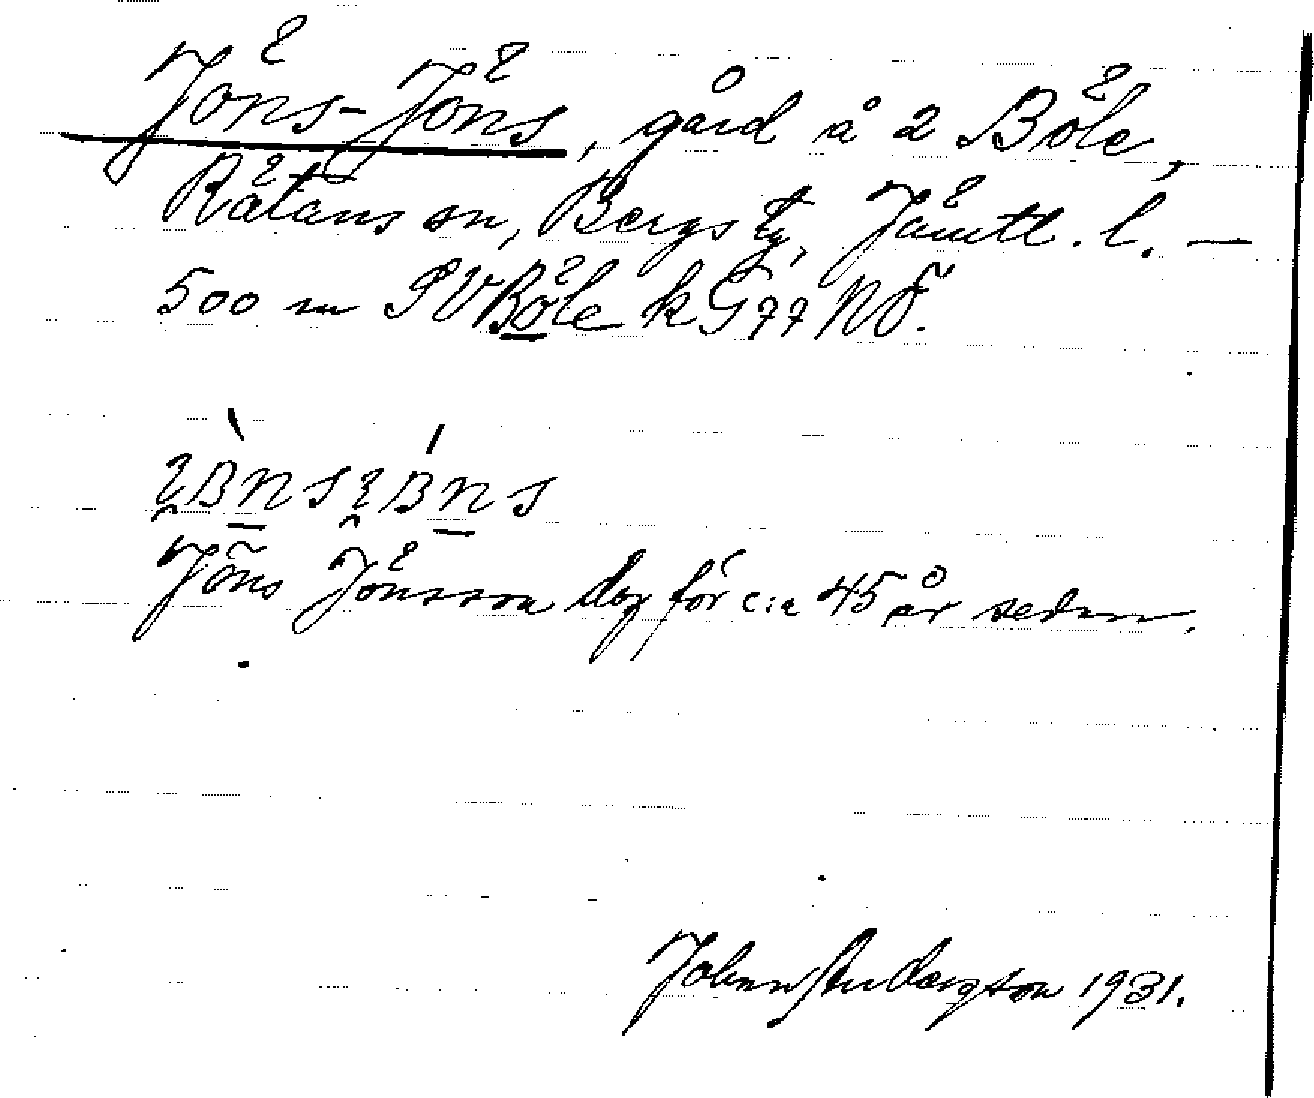 Jöns-Jöns, gård å 2 Böle,
Rätans sn, Bergs tg, Jämtl. l. —
500 m SV Böle k G77 NÖ.
Jöns Jönsson dog för c:a 45 år sedan.
1931.